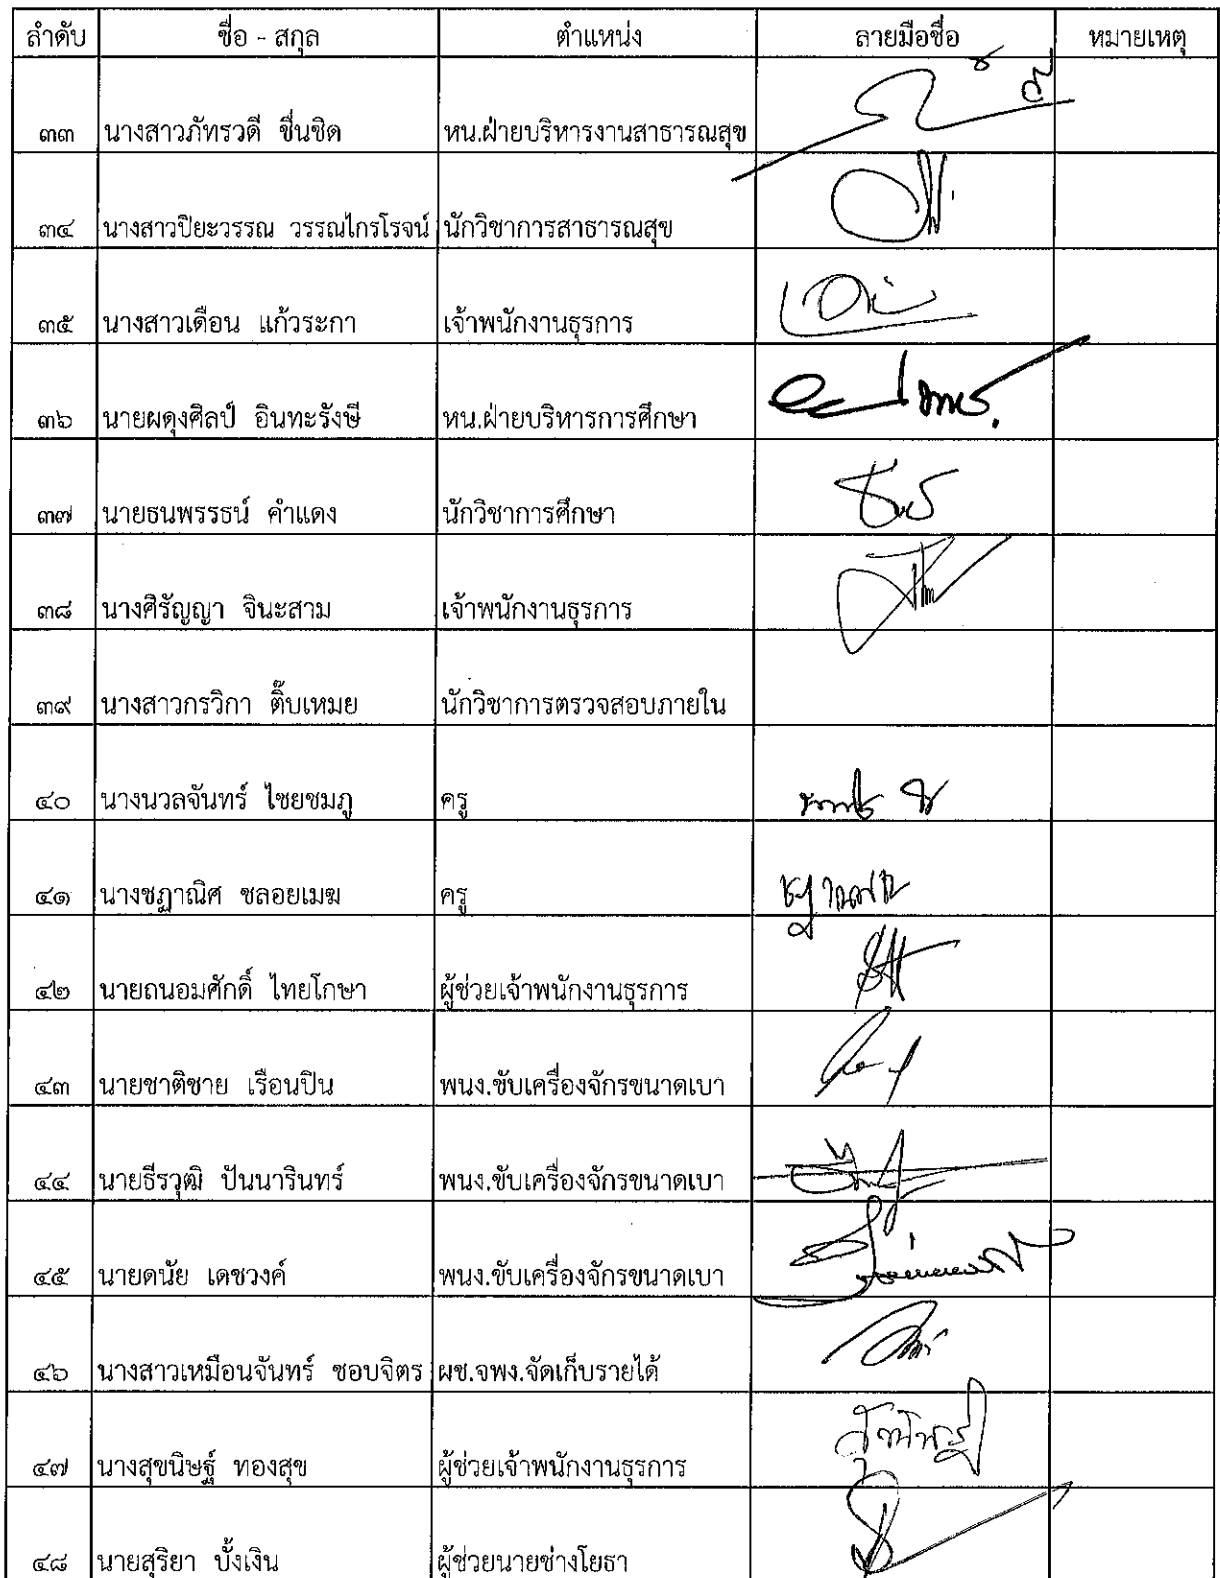 ลำดับ ชื่อ - สกุล ตำแหน่ง ลายมือชื่อ หมายเหตุ
๓๓ นางสาวภัทรวดี ชื่นชิด หน.ฝ่ายบริหารงานสาธารณสุข
๓๔ นางสาวปิยะวรรณ วรรณไกรโรจน์ นักวิชาการสาธารณสุข
๓๕ นางสาวเดือน แก้วระกา เจ้าพนักงานธุรการ
๓๖ นายผดุงศิลป์ อินทะรังษี หน.ฝ่ายบริหารการศึกษา
๓๗ นายธนพรรธน์ คำแดง นักวิชาการศึกษา
๓๘ นางศิรัญญา จินะสาม เจ้าพนักงานธุรการ
๓๙ นางสาวกรวิกา ติ๊บเหมย นักวิชาการตรวจสอบภายใน
๔๐ นางนวลจันทร์ ไชยชมภู ครู
๔๑ นางชฎาณิศ ชลอยเมฆ ครู
๔๒ นายถนอมศักดิ์ ไทยโกษา ผู้ช่วยเจ้าพนักงานธุรการ
๔๓ นายชาติชาย เรือนปิน พนง.ขับเครื่องจักรขนาดเบา
๔๔ นายธีรวุฒิ ปันนารินทร์ พนง.ขับเครื่องจักรขนาดเบา
๔๕ นายดนัย เดชวงค์ พนง.ขับเครื่องจักรขนาดเบา
๔๖ นางสาวเหมือนจันทร์ ชอบจิตร ผช.จพง.จัดเก็บรายได้
๔๗ นางสุขนิษฐ์ ทองสุข ผู้ช่วยเจ้าพนักงานธุรการ
๔๘ นายสุริยา บั้งเงิน ผู้ช่วยนายช่างโยธา